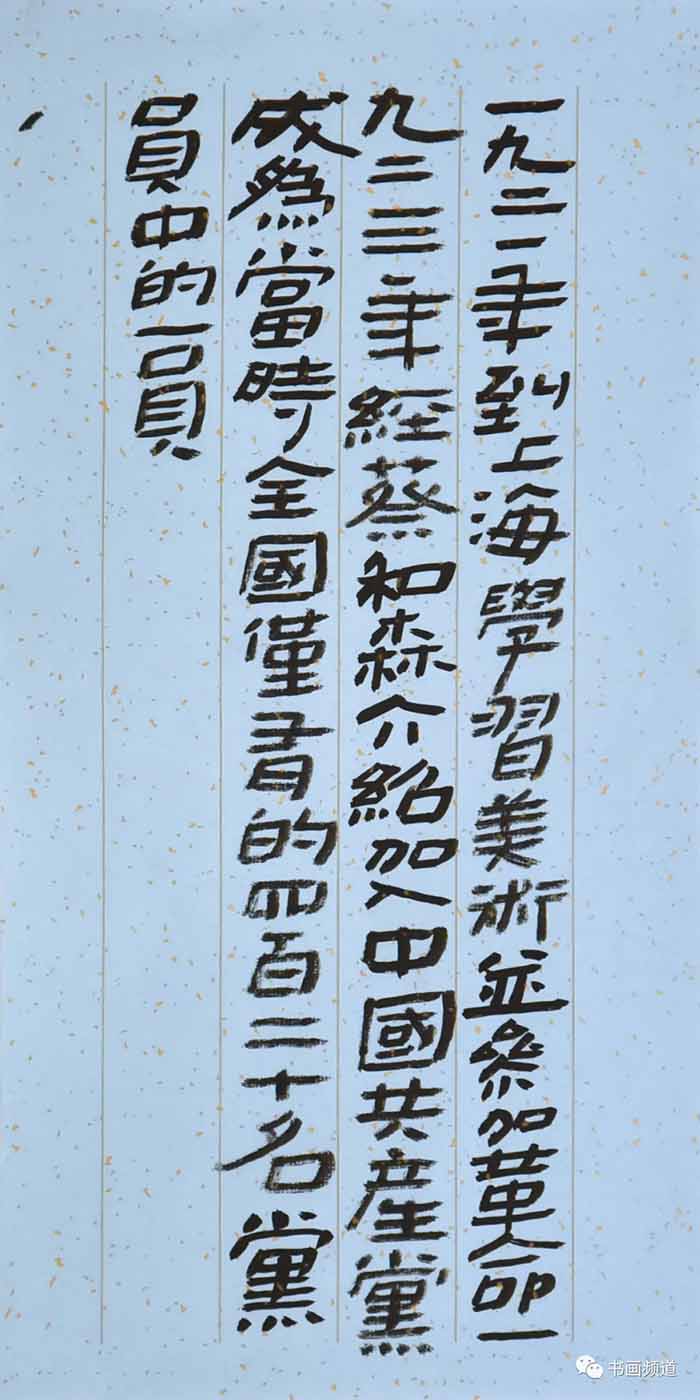 一九二一年到上海學習美術並參加革命一
九二三年經蔡和森介紹加入中國共産黨
成為當時全國僅有的四百二十名黨
員中的一員
书画频道